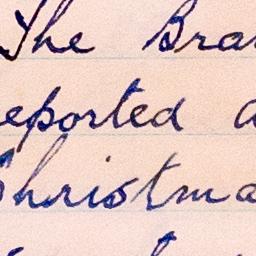 The Bra
eported a
hristma